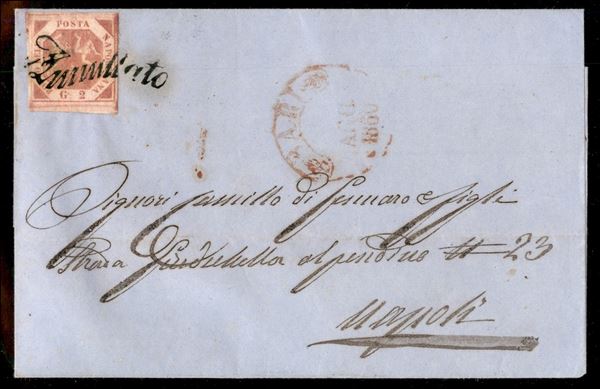 POSTA NAPOLETANA
G. 2
Annullato
BARI
1860
Signori Camillo di Gennaro e figli
Strada al pendino # 23
Napoli